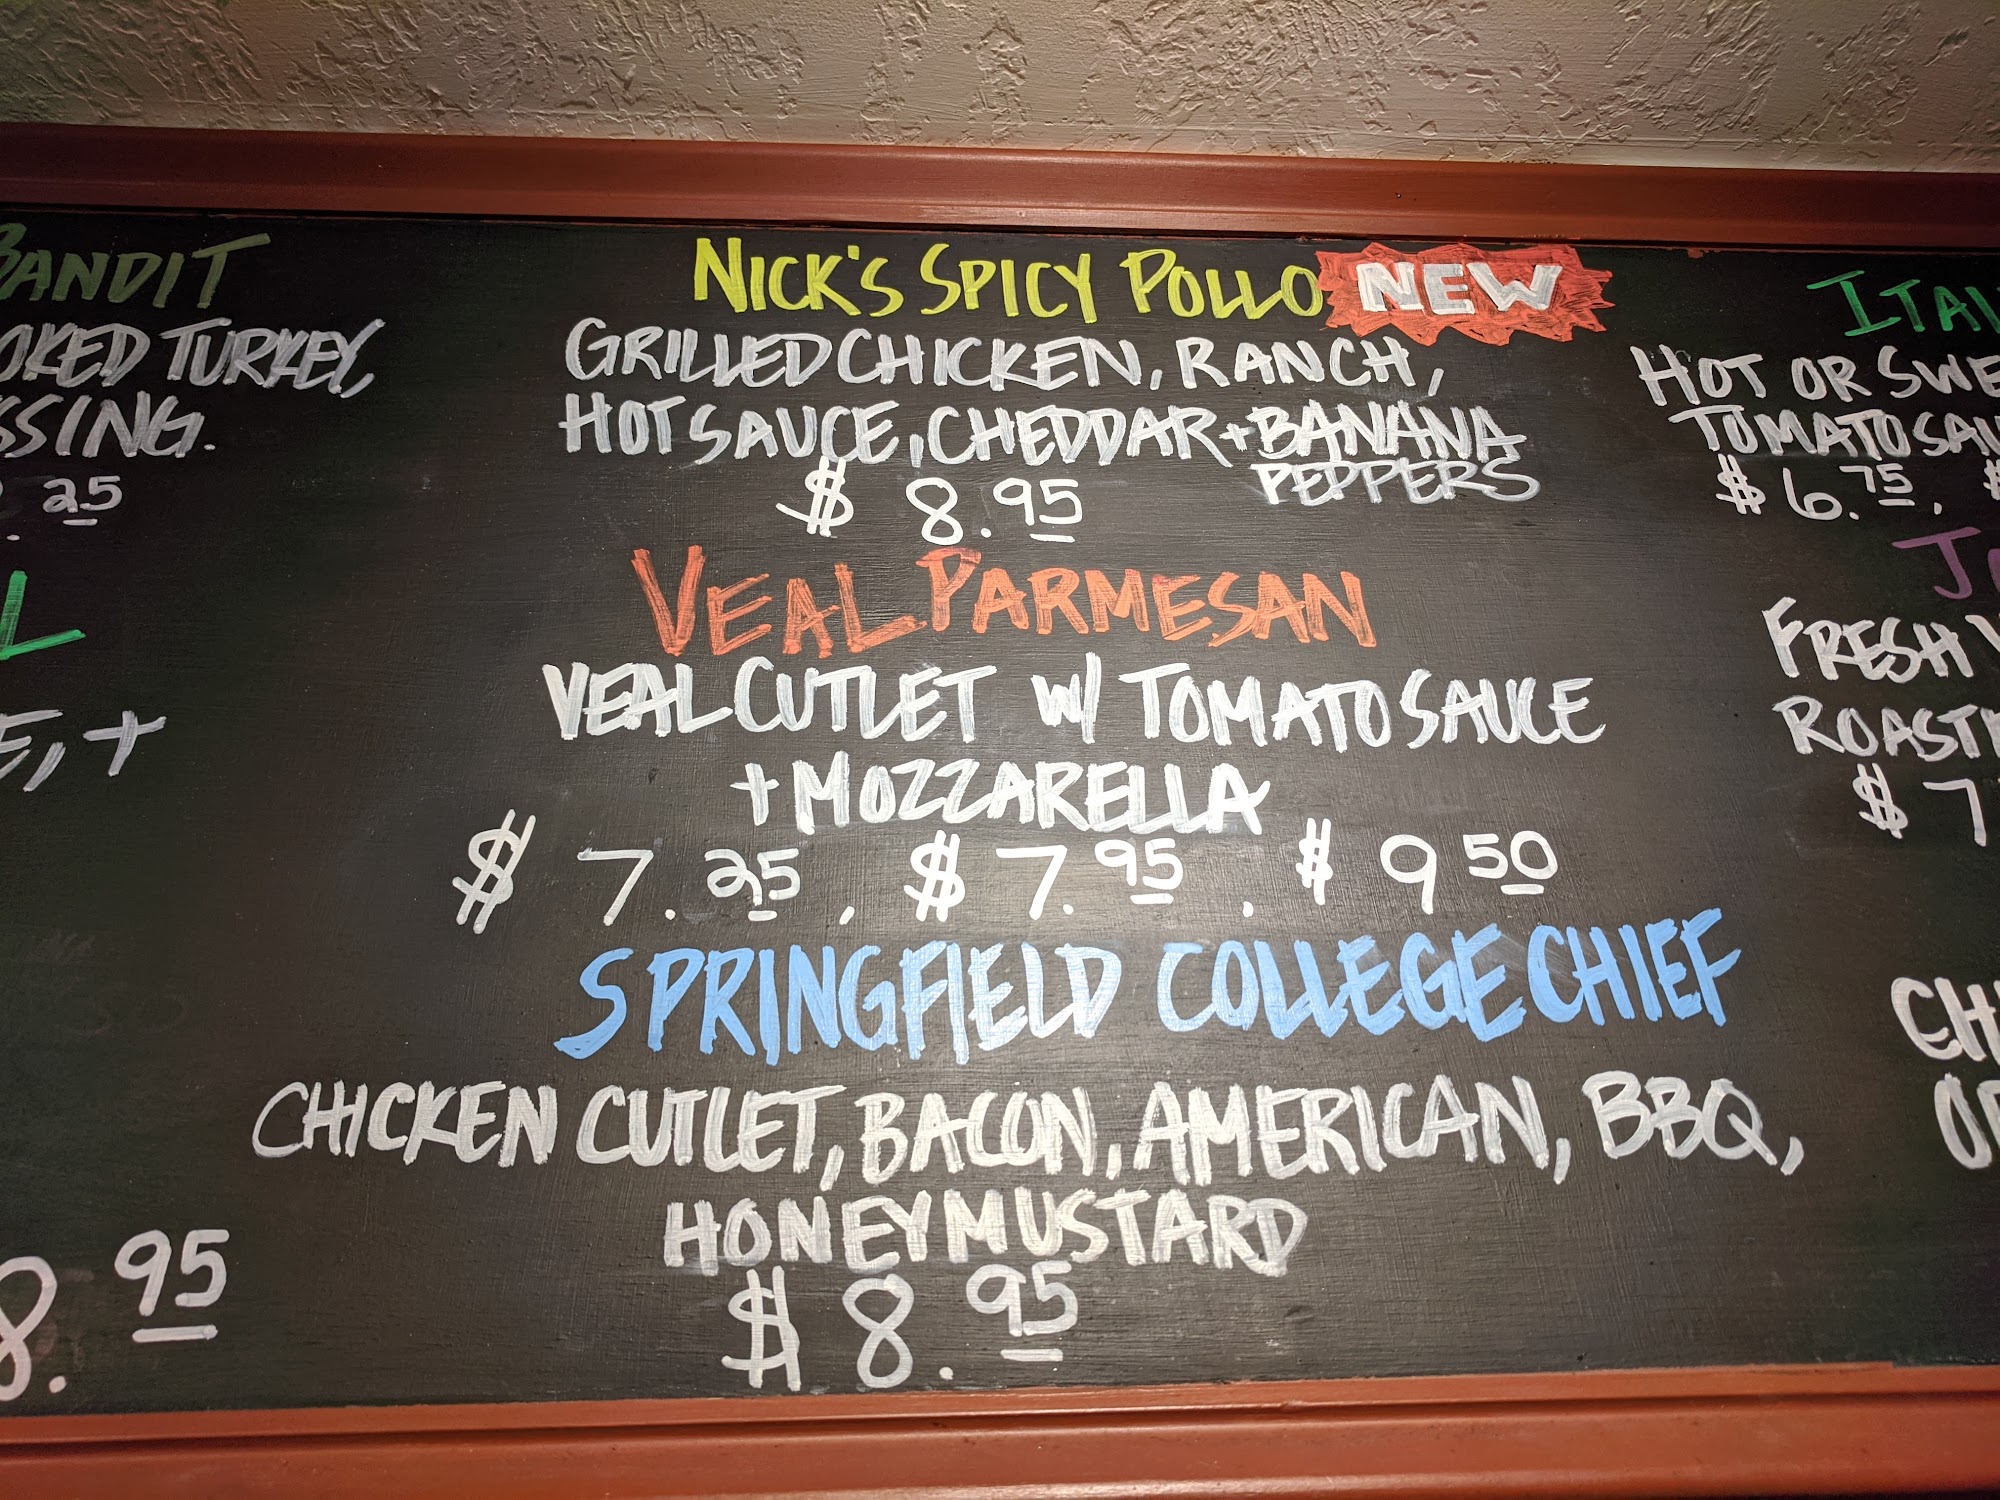 BANDIT
OKED TURKEY,
SSING.
.25
L
E, +
8.95
NICK'S SPICY POLLO NEW
GRILLED CHICKEN, RANCH,
HOT SAUCE, CHEDDAR + BANANA
PEPPERS
$ 8.95
VEAL PARMESAN
VEAL CUTLET W/ TOMATO SAUCE
+ MOZZARELLA
$ 7.25, $ 7.95, $ 9 50
SPRINGFIELD COLLEGE CHIEF
CHICKEN CUTLET, BACON, AMERICAN, BBQ,
HONEY MUSTARD
$ 8.95
ITAL
HOT OR SWE
TOMATO SAU
$ 6.75, $
J
FRESH
ROAST
$ 7
CHI